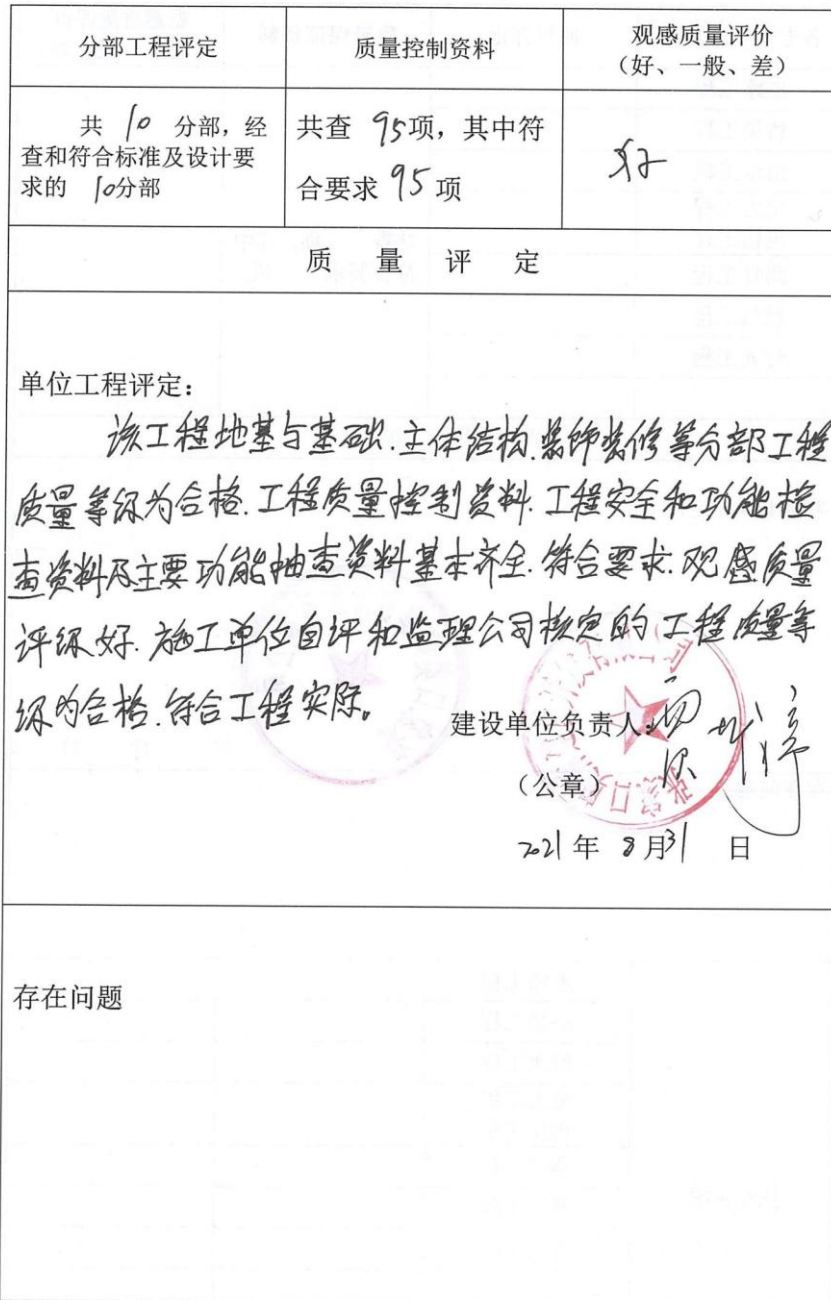 分部工程评定
质量控制资料
观感质量评价
（好、一般、差）
共 10 分部，经
查和符合标准及设计要
求的 10分部
共查 95项，其中符
合要求 95 项
好
质 量 评 定
单位工程评定：
该工程地基与基础.主体结构.装饰装修等分部工程
质量等级为合格.工程质量控制资料.工程安全和功能检
查资料及主要功能抽查资料基本齐全.符合要求.观感质量
评级好.施工单位自评和监理公司核定的工程质量等
级为合格.符合工程实际。
建设单位负责人
（公章）
2021年 8月31 日
存在问题